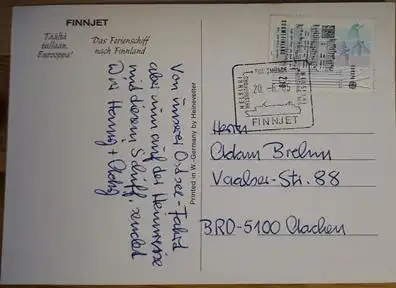 FINNJET
Täältä
tullaan,
Eurooppa!
Das Ferienschiff
nach Finnland
Von unserer Ostsee-Fahrt
aber nun auf der Heimreise
mit diesem Schiff, sendet
Printed in W.-Germany by Heinevetter
HELSINKI
HELSINGFORS
20.-6.
FINNJET
Herrn
Adam Brehm
Vaalser-Str. 88
BRD-5100 Aachen